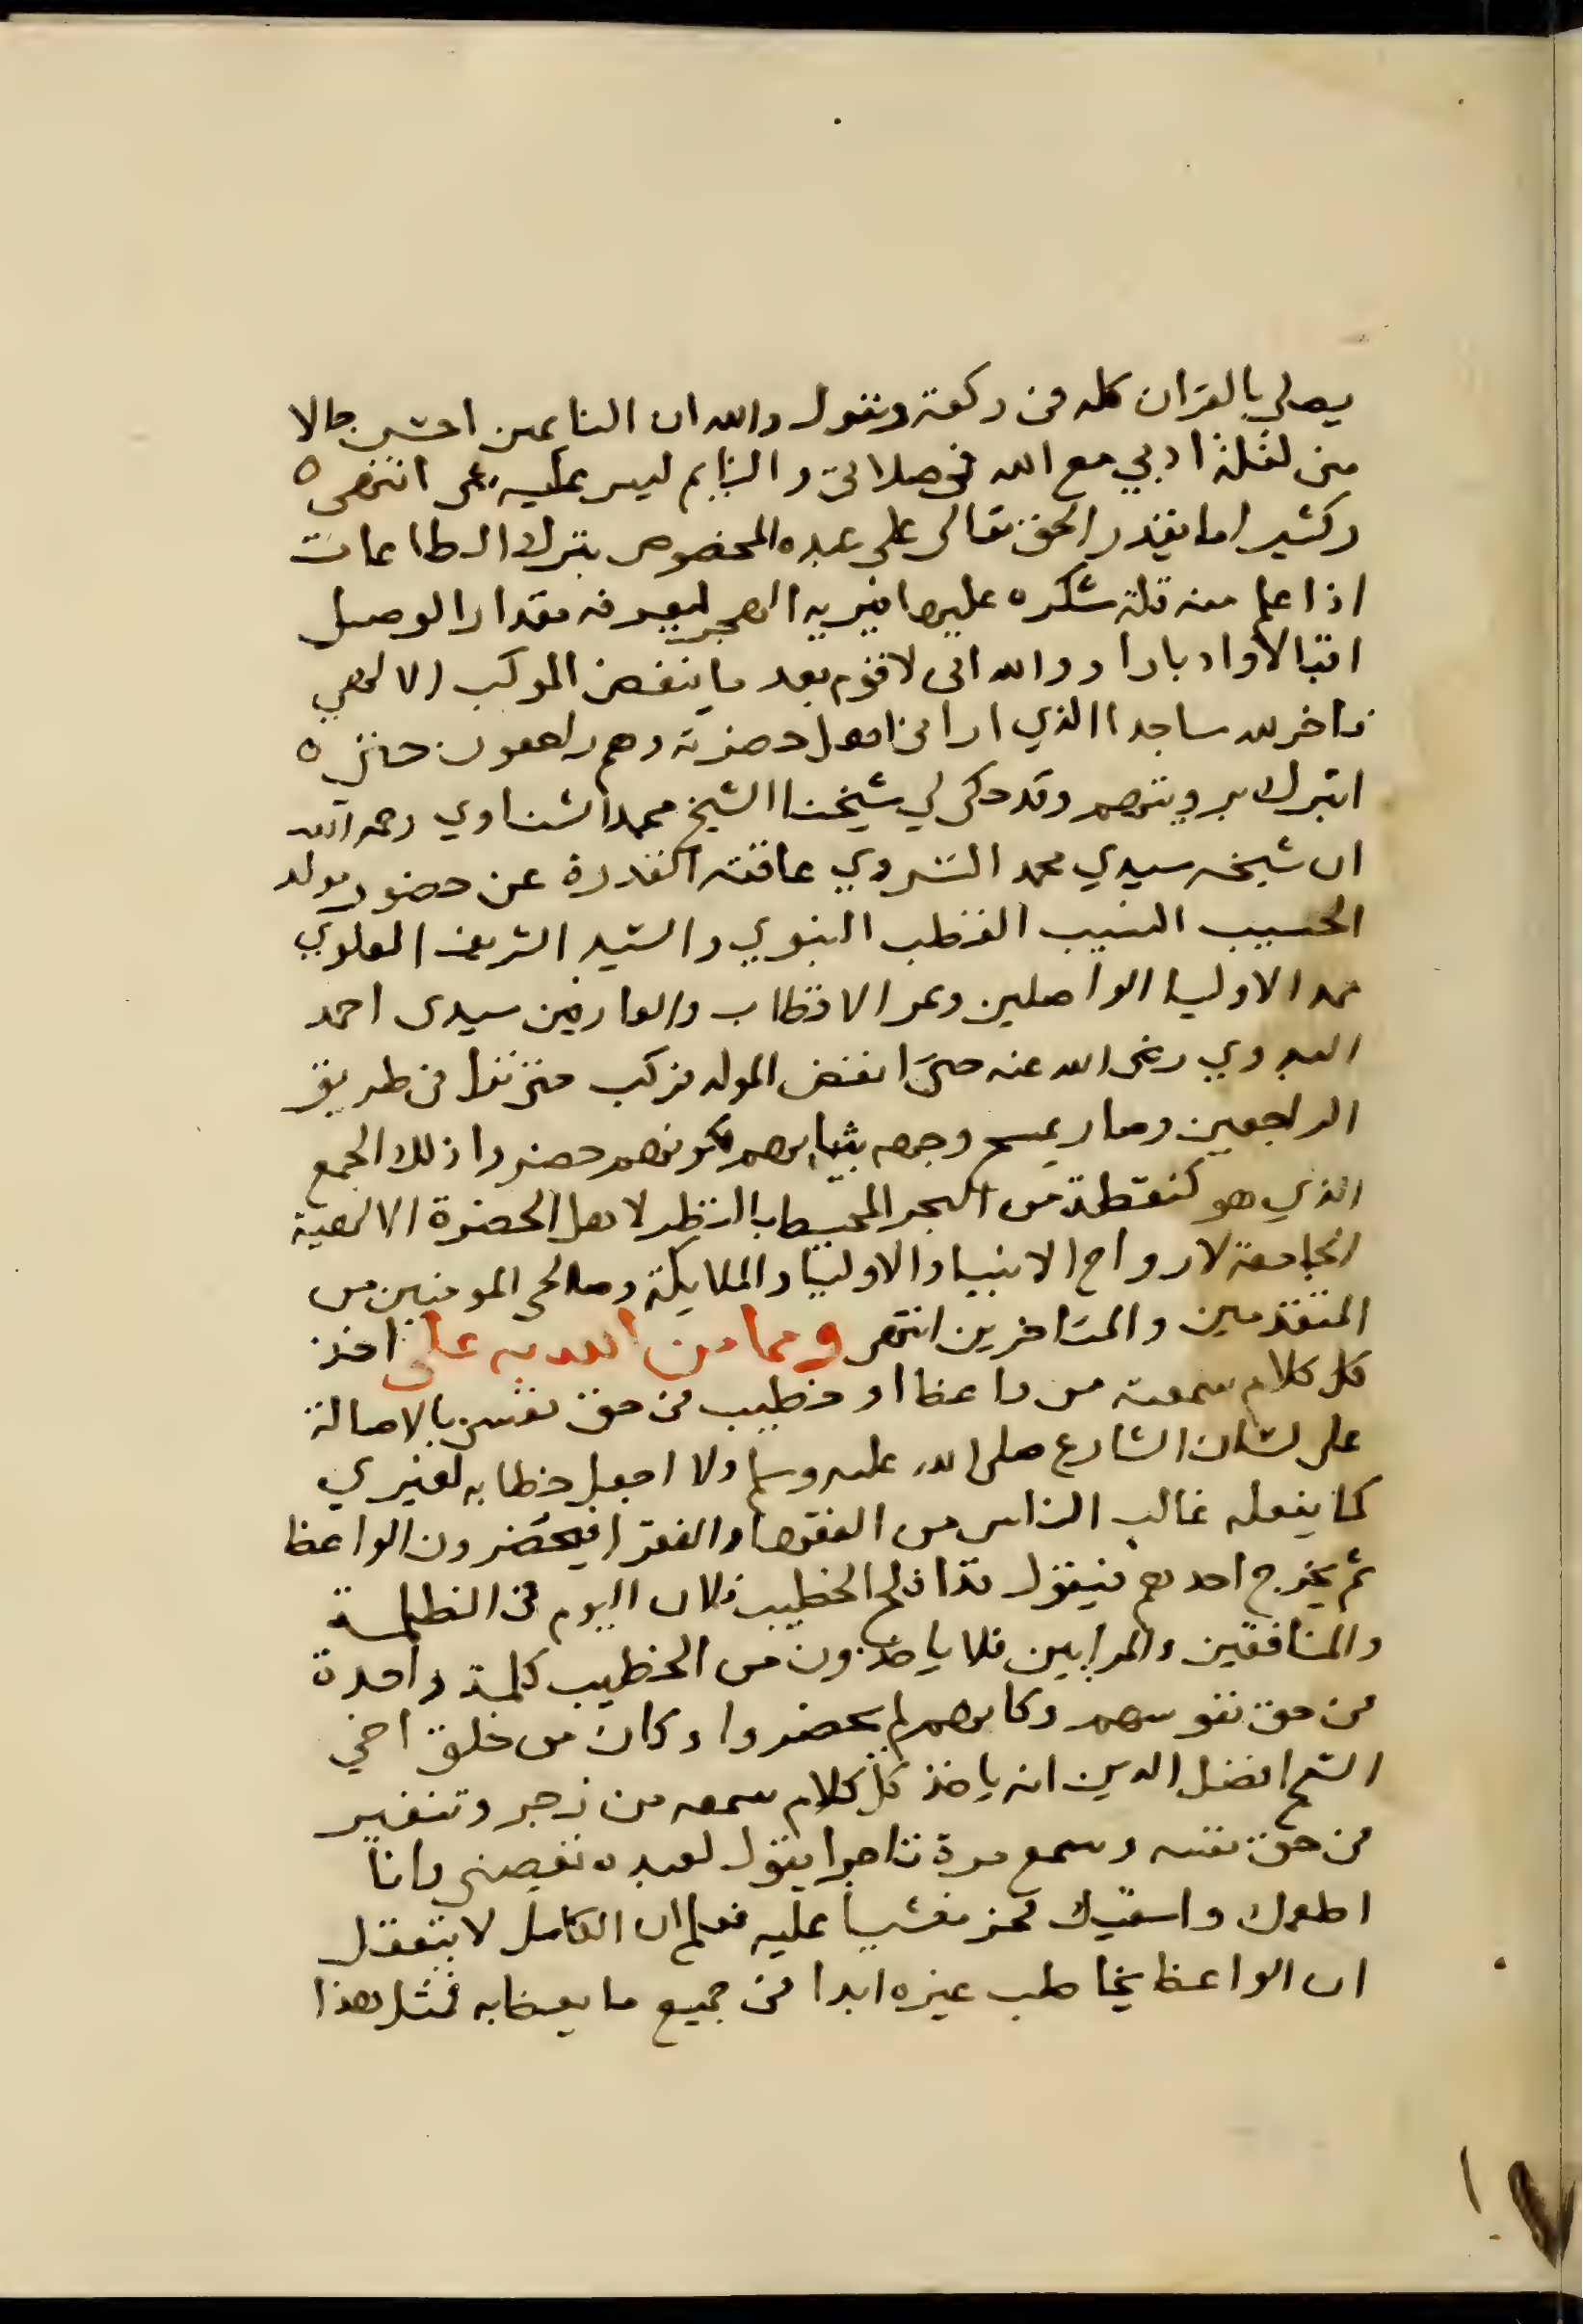 يصلي بالقران كله في ركعة ويقول والله ان النايمين احسن حالا
مني لقلة ادبي مع الله في صلاتي والنايم ليس عليه انتهى ه
وكثيرا ما يقدر الحق تعالى على عبده المخصوص بترك الطاعات
اذا علم منه قلة شكره عليها فيريه الهجر ليعرفه مقدار الوصل
اقبالا وادبارا ووالله اني لاقوم بعد ما ينفض الموكب الالهي
فاخر لله ساجدا الذي اراني اهل حضرته وهم راجعون حتى ه
اتبرك برويتهم وقد حكى لي شيخنا الشيخ محمد الشناوي رحمه الله
ان شيخه سيدي محمد السروي عاقته القدرة عن حضور مولد
الحسيب النسيب القطب النبوي والسيد الشريف العلوي
ممد الاوليا الواصلين وبحر الاقطاب والعارفين سيدى احمد
البدوي رضى الله عنه حتى انفض المولد فركب حتى نزل في طريق
الراجعين وصار يمسح وجهه بثيابهم لكونهم حضروا ذلك الجمع
الذي هو كنقطة من البحر المحيط بالنظر لاهل الحضرة الالهية
الجامعة لارواح الانبيا والاوليا والملايكة وصالحي المومنين من
المتقدمين والمتاخرين انتهى ومما من الله به على اخذ
كل كلام سمعته من واعظ او خطيب في حق نفسي بالاصالة
على لسان الشارع صلى الله عليه وسلم ولا اجعل خطابه لغيري
كما يفعله غالب الناس من الفقها والفقرا فيحضرون الواعظ
ثم يخرج احدهم فيقول الخطيب فلان اليوم في الظلمة
والمنافقين والمرايين فلا ياخذون من الخطيب كلمة واحدة
في حق نفوسهم وكانهم لم يحضروا وكان من خلق اخي
الشيخ افضل الدين انه ياخذ كل كلام سمعه من زجر وتنفير
في حق نفسه وسمع مرة تاجرا يقول لعبده تعصني وانا
اطعمك واسقيك فخر مغشيا عليه فعلم ان الكامل لا يتعقل
ان الواعظ يخاطب غيره ابدا في جميع ما يعظ به فمثل هذا